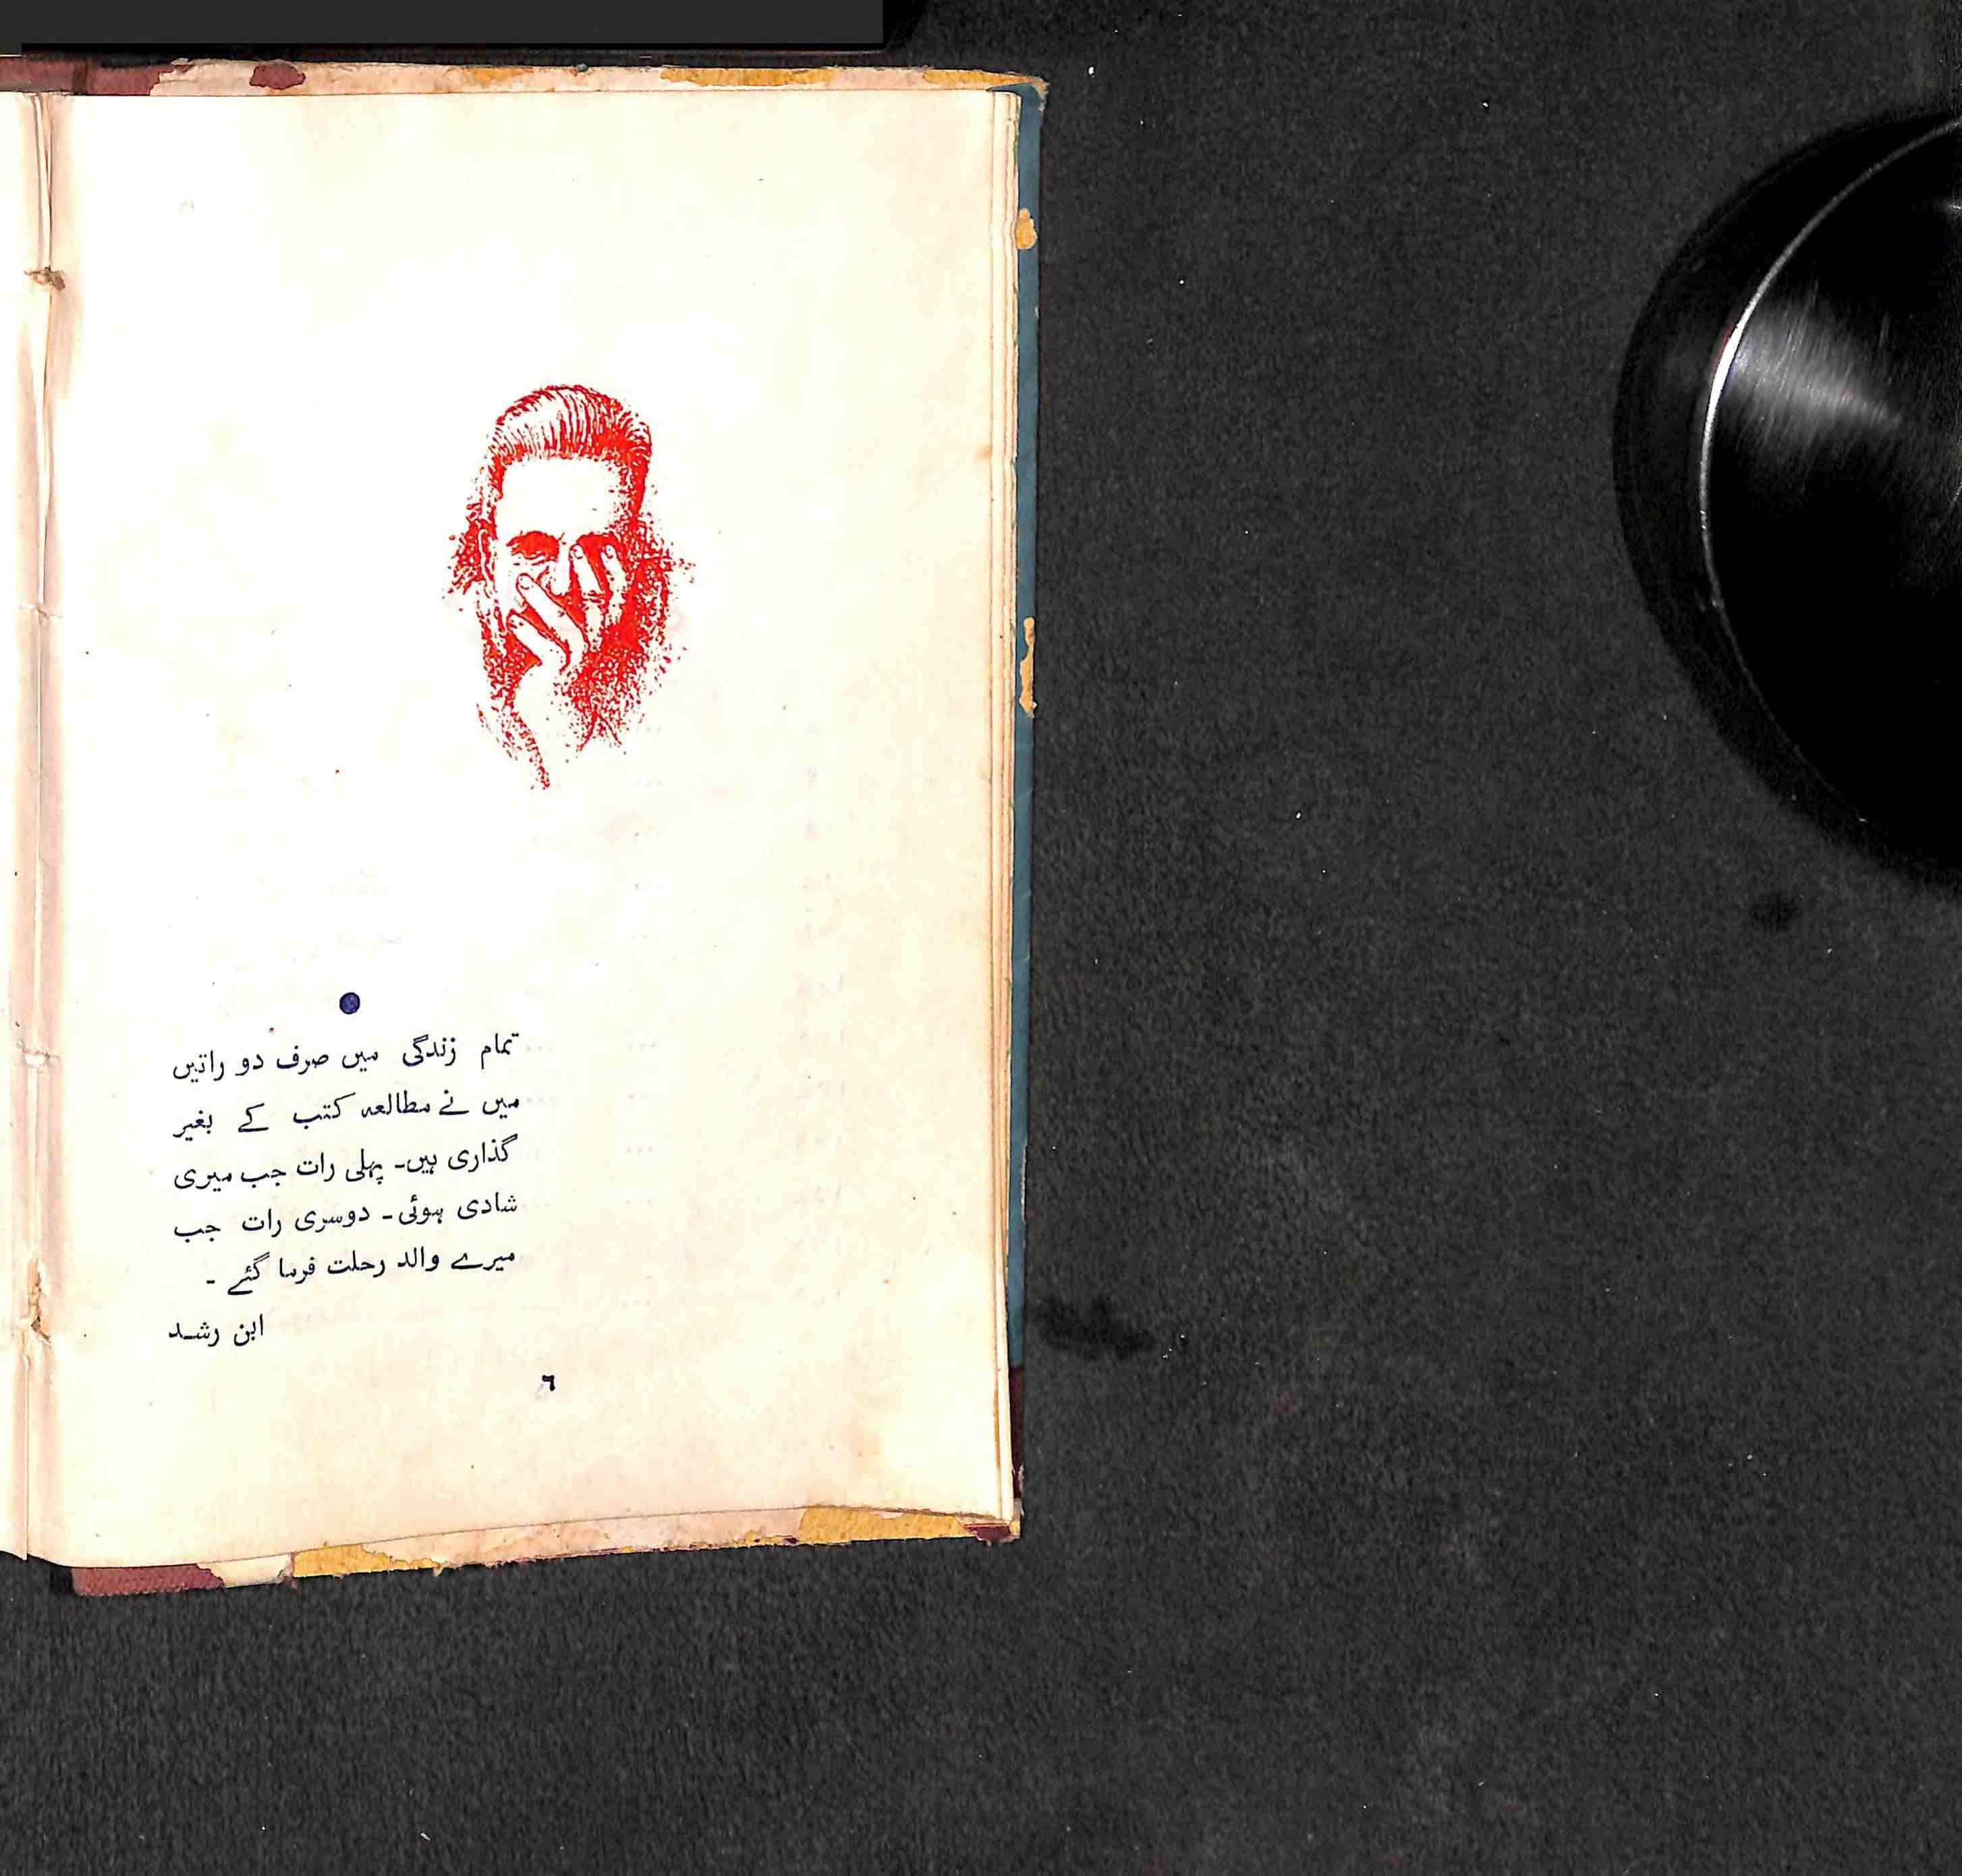 تمام زندگی میں صرف دو راتیں
میں نے مطالعہ کتب کے بغیر
گذاری ہیں۔ پہلی رات جب میری
شادی ہوئی۔ دوسری رات جب
میرے والد رحلت فرما گئے ۔
ابن رشد
٦